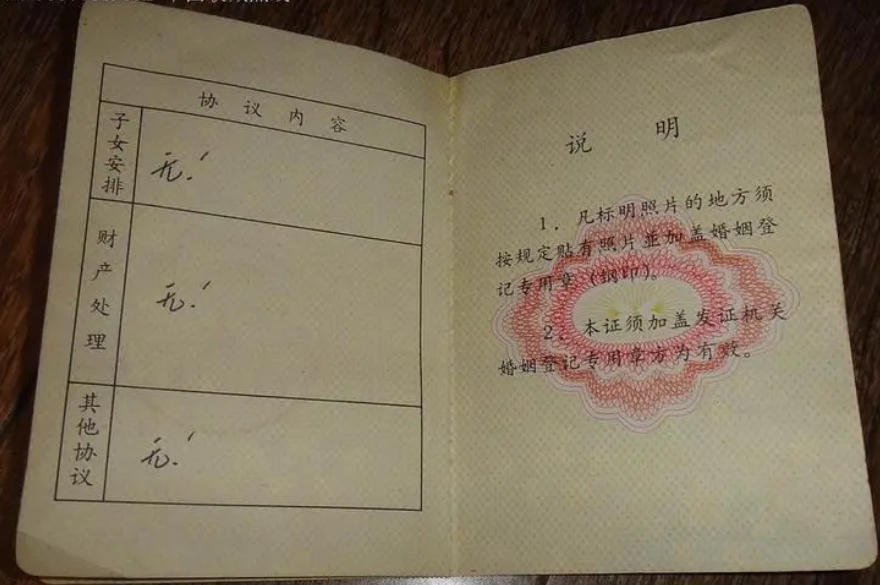 协议内容
子女安排
无!
财产处理
无!
其他协议
无!
说明
1. 凡标明照片的地方须
按规定贴有照片並加盖婚姻登
记专用章(钢印)。
2. 本证须加盖发证机关
婚姻登记专用章方为有效。